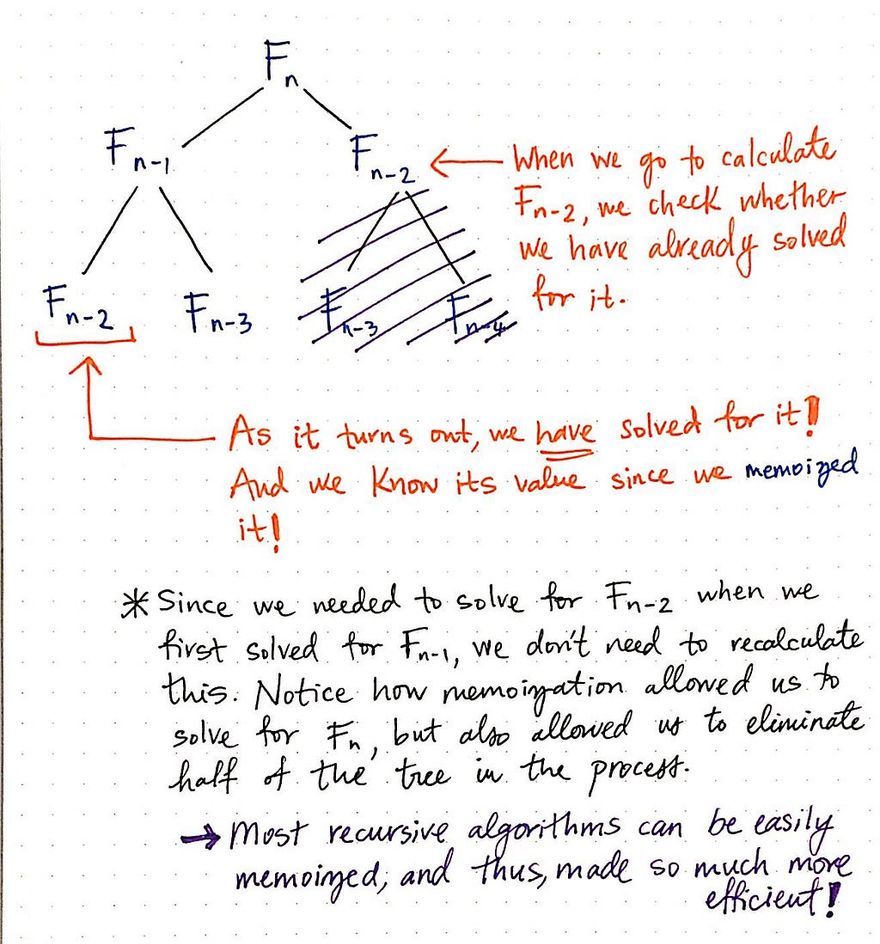 Fn
Fn-1
Fn-2
Fn-2
Fn-3
Fn-3
Fn-4
When we go to calculate
Fn-2, we check whether
we have already solved
for it.
As it turns out, we have solved for it!
And we know its value since we memoized
it!
* Since we needed to solve for Fn-2 when we
first solved for Fn-1, we don't need to recalculate
this. Notice how memoization allowed us to
solve for Fn, but also allowed us to eliminate
half of the tree in the process.
→ Most recursive algorithms can be easily
memoized, and thus, made so much more
efficient!